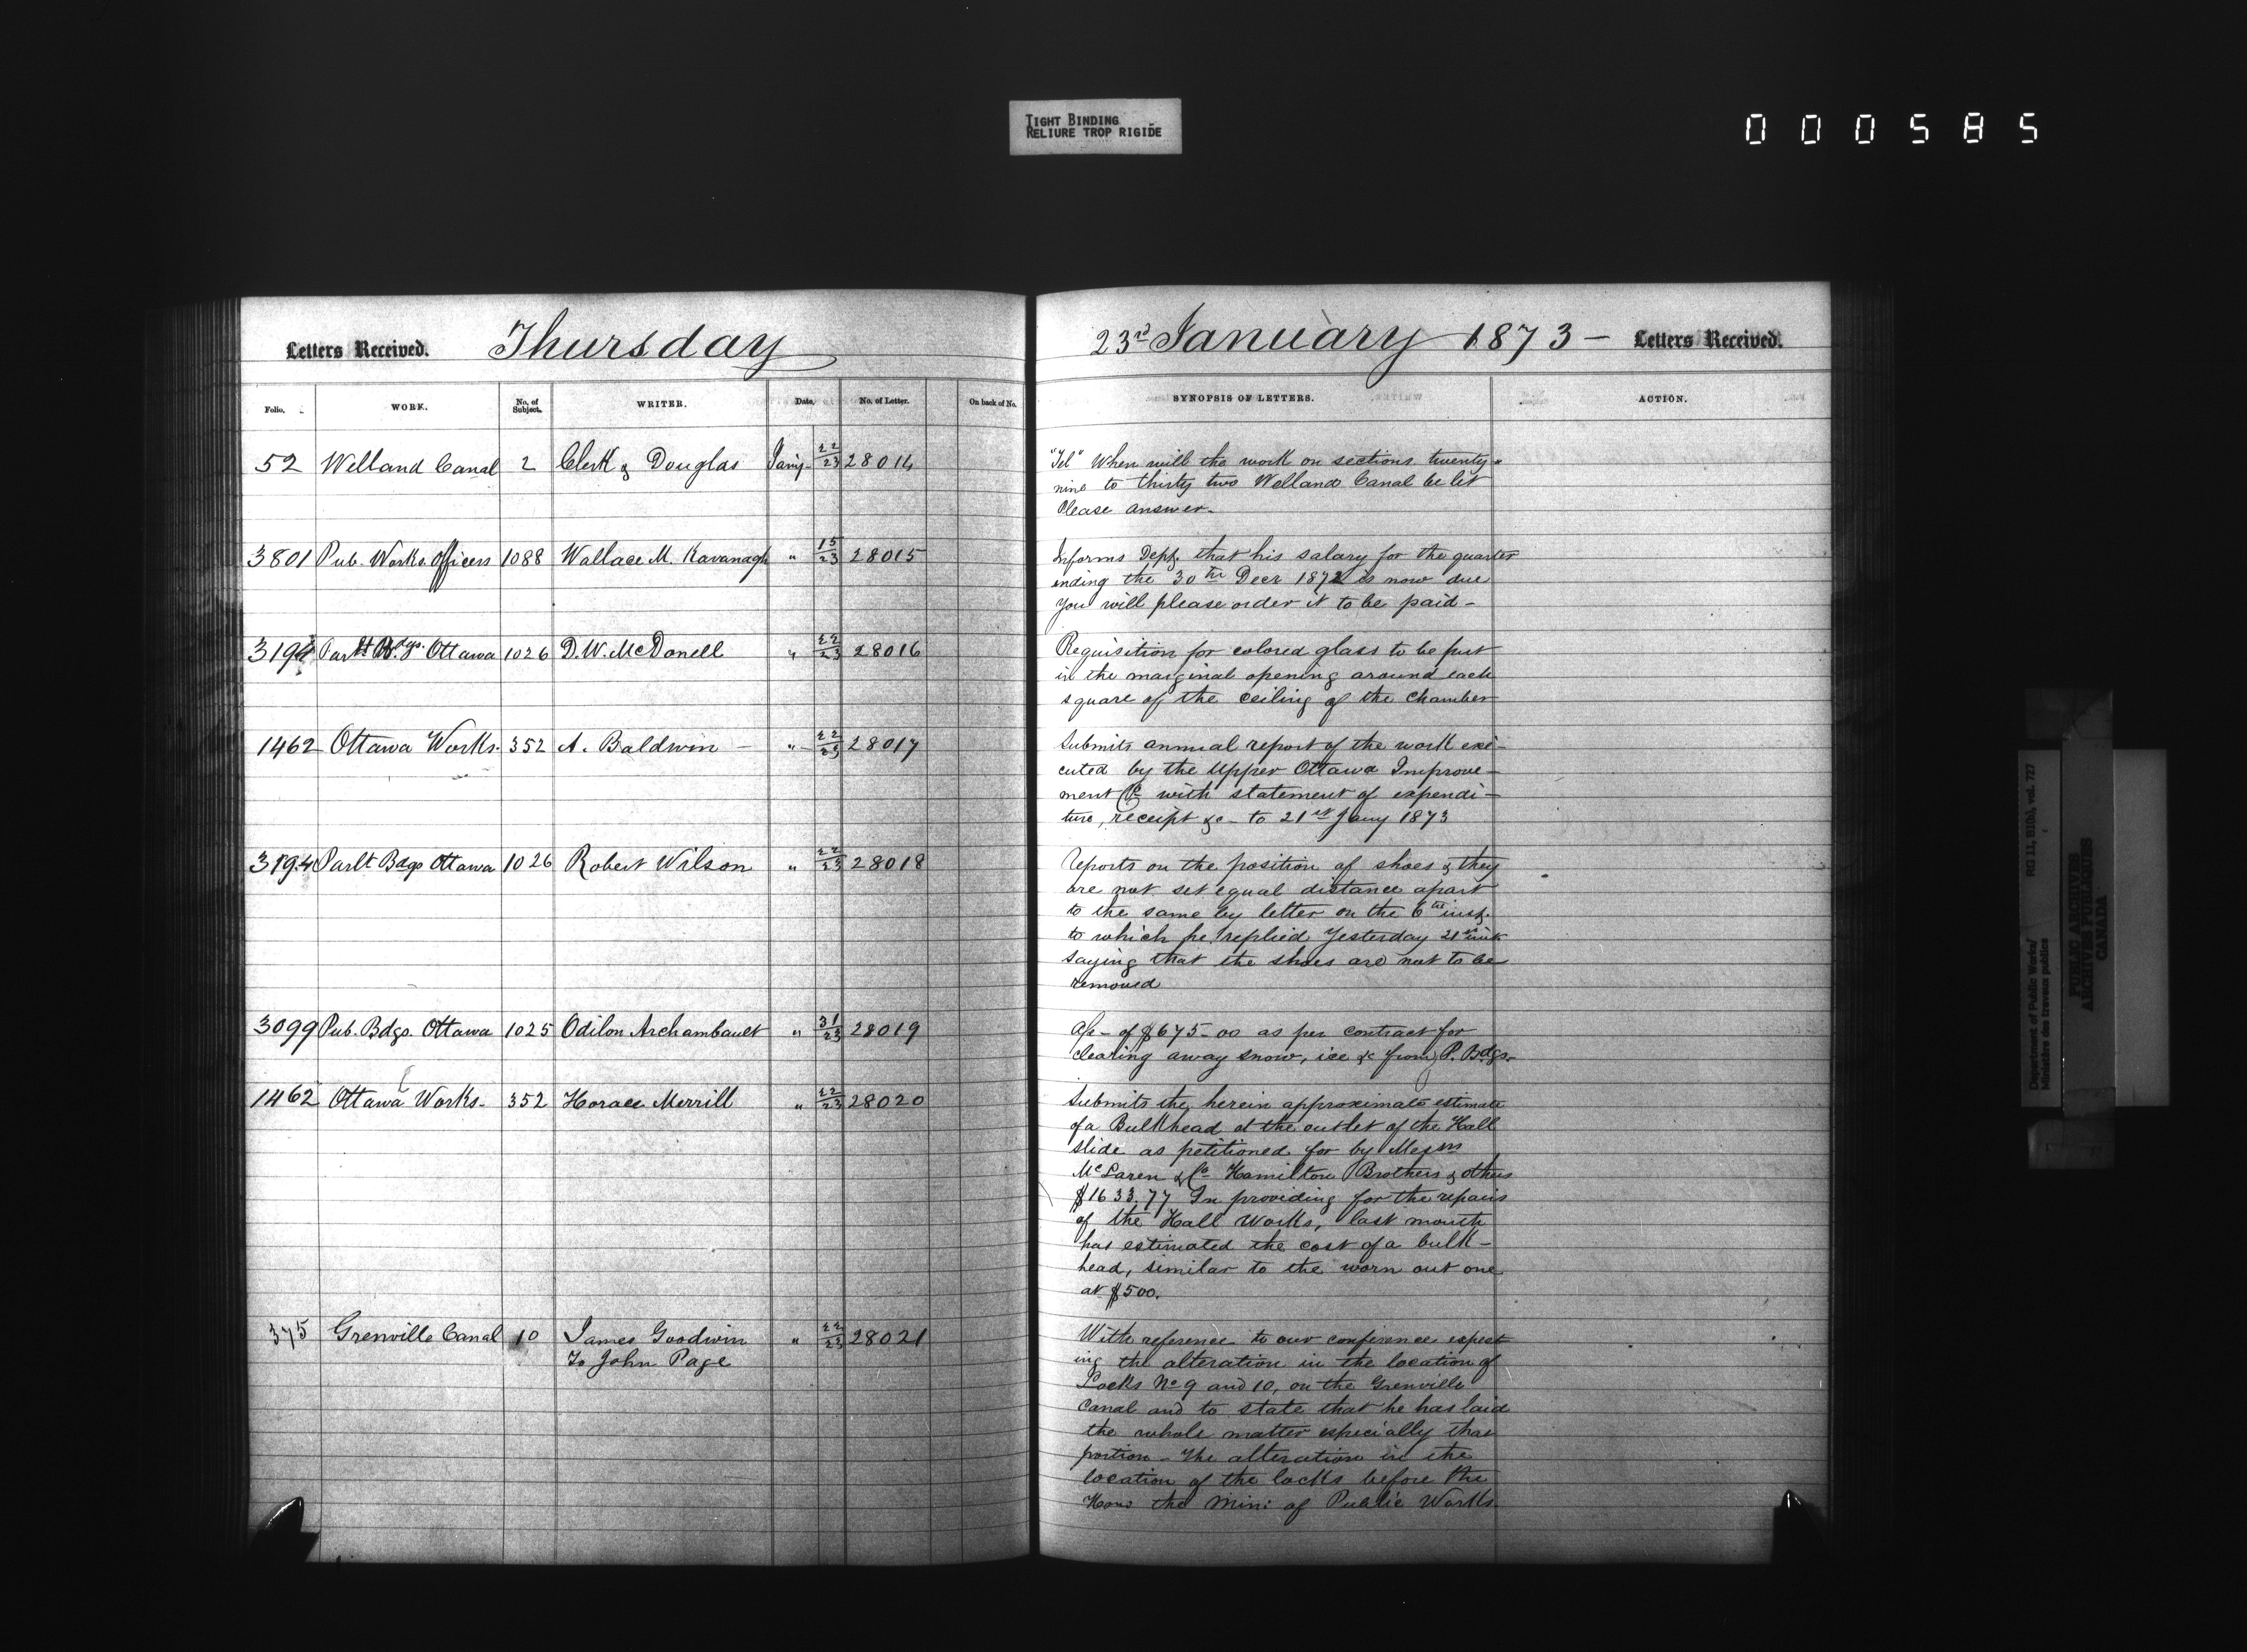 TIGHT BINDING
RELIURE TROP RIGIDE
000585
Letters Received. Thursday
23rd January 1873 — Letters Received.
Folio. WORK. No. of Subject. WRITER. Date. No. of Letter. On back of No. SYNOPSIS OF LETTERS. ACTION.
52 Welland Canal 2 Clerk & Douglas Jany 22/23 28014
"Tel" When will the work on sections twenty-
nine to thirty two Welland Canal be let
Please answer.
3801 Pub. Works Officers 1088 Wallace M. Kavanagh " 15/23 28015
Informs Dept that his salary for the quarter
ending the 30th Decr 1872 is now due
You will please order it to be paid —
3194 Parlt Bdgs. Ottawa 1026 D. W. McDonell " 22/23 28016
Requisition for colored glass to be put
in the marginal opening around each
square of the ceiling of the chamber
1462 Ottawa Works. 352 A. Baldwin — " 22/23 28017
Submits annual report of the work exe-
cuted by the Upper Ottawa Improve-
ment Co with statement of expendi-
ture, receipt &c — to 21st Jany 1873
3194 Parlt Bdgs Ottawa 1026 Robert Wilson " 22/23 28018
Reports on the position of shoes & they
are not set equal distance apart
to the same by letter on the 6th inst.
to which he replied Yesterday 21st inst
saying that the shoes are not to be
removed
3099 Pub. Bdgs. Ottawa 1025 Odilon Archambault " 31/23 28019
a/c — of $675-00 as per contract for
clearing away snow, ice &c from P. Bdgs.
1462 Ottawa Works. 352 Horace Merrill " 22/23 28020
Submits the herein approximate estimate
of a Bulkhead at the outlet of the Hall
slide as petitioned for by Messrs
McLaren & Co Hamilton Brothers & others
$1633.77 In providing for the repairs
of the Hall Works, last month
has estimated the cost of a bulk-
head, similar to the worn out one
at $500.
375 Grenville Canal 10 James Goodwin " 22/23 28021
To John Page
With reference to our conference espect
ing the alteration in the location of
Locks No 9 and 10, on the Grenville
Canal and to state that he has laid
the whole matter especially that
portion — the alteration in the
location of the locks before the
Hon the Min: of Public Works.
Department of Public Works/
Ministère des travaux publics
RG 11, B1(b), vol. 727
PUBLIC ARCHIVES
ARCHIVES PUBLIQUES
CANADA